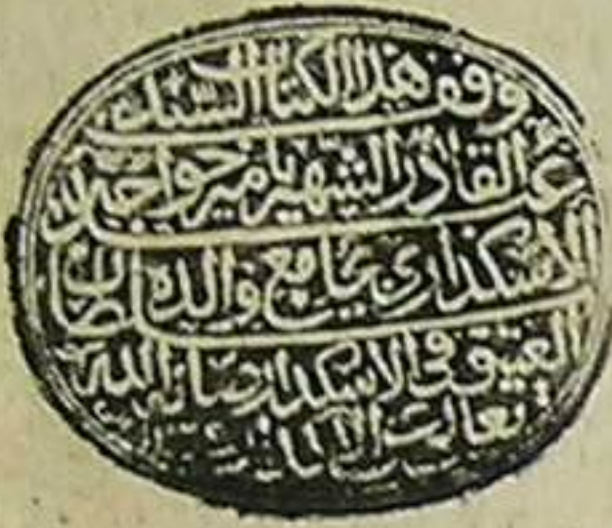 وقف هذا الكتاب السيد
عبد القادر الشهير بامير خواجه
الاسكداري بجامع والده سلطان
العتيق في الاسكدار صانه الله
تعالى